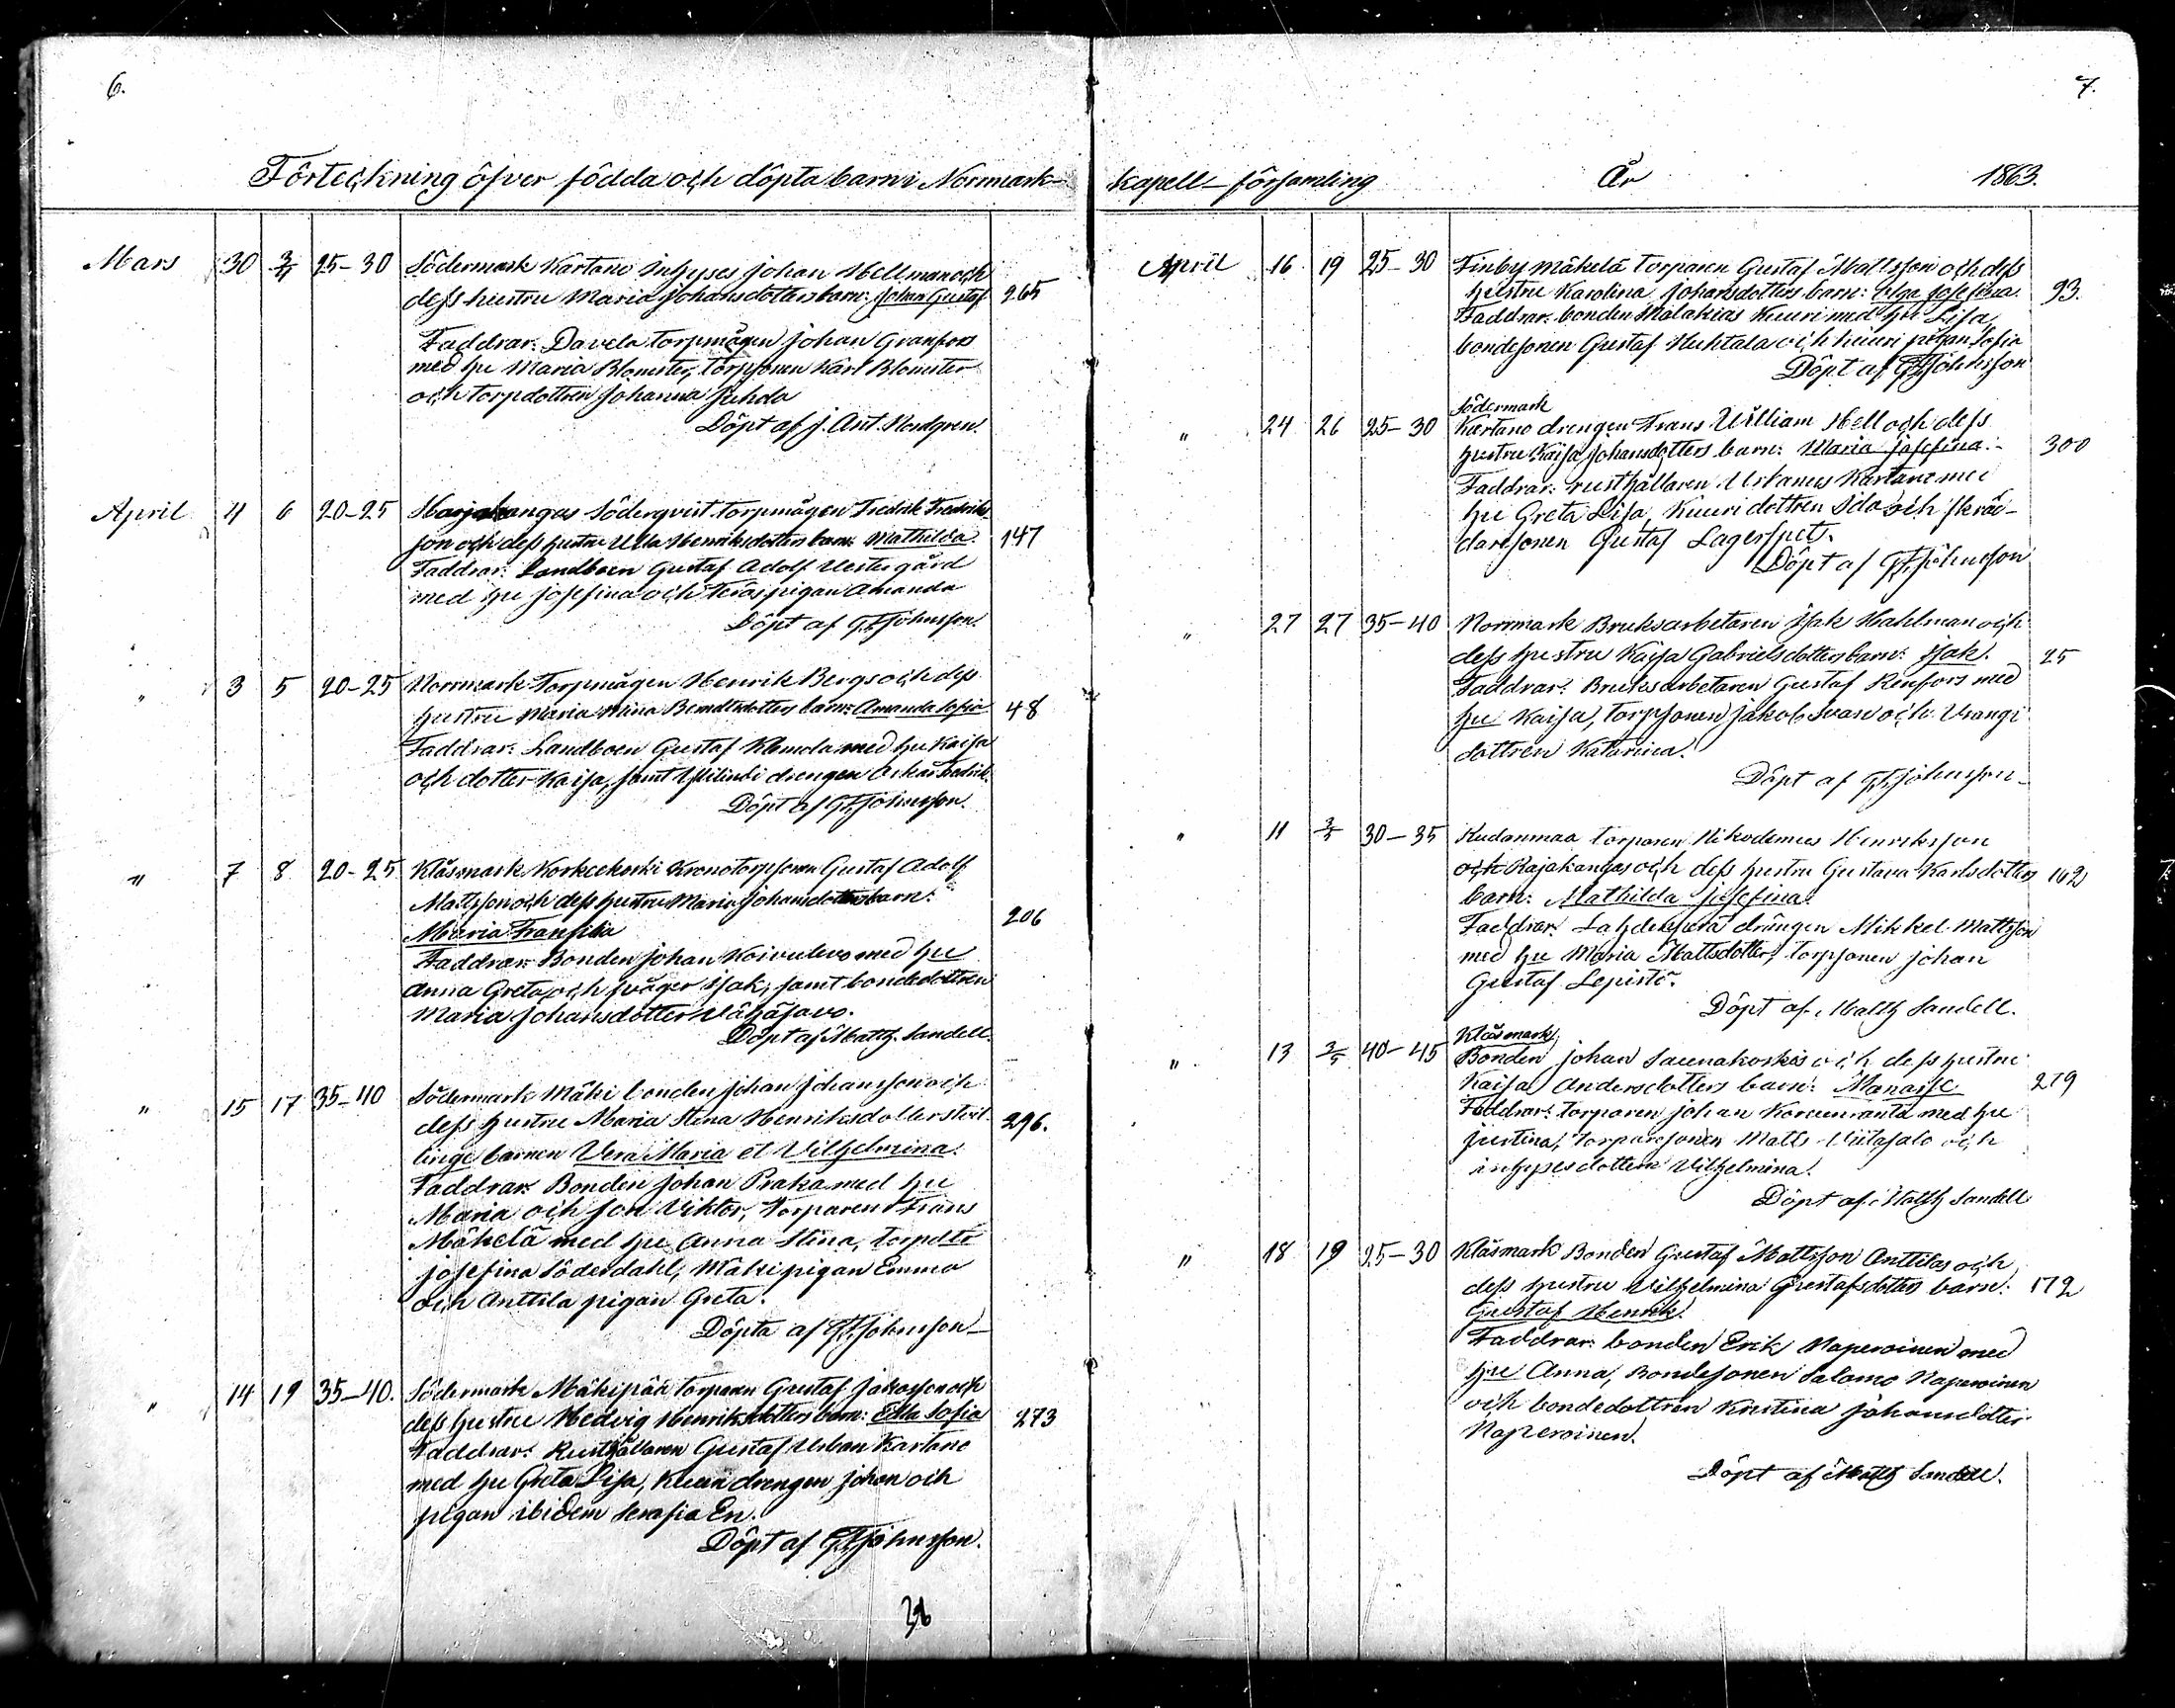 6.
Förteckning öfver födda och döpta barn i Norrmark
Mars 30 3/4 25-30 Södermark Kartano Inhyses Johan Hellman och
dess hustru Maria Johansdotters barn: Johan Gustaf 265
Faddrar: Davela torpmågen Johan Granfors
med hu Maria Blomster, torpsonen Karl Blomster
och torpdottren Johanna Juhda
Döpt af J. Ant. Nordgren.
April 4 6 20-25 Harjakangas Söderqvist torpmågen Fredrik Fredriks-
son och dess hustru Ulla Henriksdotters barn: Mathilda 147
Faddrar: Landboen Gustaf Adolf Vestergård
med hu Josefina och Teräs pigan Amanda
Döpt af G.F. Johnsson.
" 3 5 20-25 Norrmark Torpmågen Henrik Bergs och dess
hustru Maria Mina Berndtsdotters barn: Amanda Sofia 48
Faddrar: Landboen Gustaf Klemola med hu Kaisa
och dotter Kaisa, samt drengen Oskar Fredrik.
Döpt af G.F. Johnsson.
" 7 8 20-25 Klåsmark Korkeekoski Kronotorpsonen Gustaf Adolf
Mattsson och dess hustru Maria Johansdotters barn:
Maria Fransilia 206
Faddrar: Bonden Johan Koivulevo med hu
Anna Greta och svåger Isak, samt bondedottren
Maria Johansdotter Vähäsavo.
Döpt af Matth. Sandell.
" 15 17 35-40 Södermark Mäki bonden Johan Johansson och
dess hustru Maria Stina Henriksdotters tvil- 296.
linge barnen Vera Maria et Vilhelmina.
Faddrar: Bonden Johan Praka med hu
Maria och son Viktor, Torparen Frans
Mäkelä med hu Anna Stina, torpdtr
Josefina Söderdahl, Mäki pigan Emma
och Anttila pigan Greta.
Döpta af G.F. Johnsson
" 14 19 35-40. Södermark Mäkipää torparen Gustaf Jakosson och
dess hustru Hedvig Henriksdotters barn: Edla Sofia 273
Faddrar: Rusthållaren Gustaf Urban Kartano
med hu Greta Lisa, Kuuri drengen Johan och
pigan ibidem Serafia En.
Döpt af G.F. Johnsson.
7.
Kapell-församling År 1863.
April 16 19 25-30 Finby Mäkelä torparen Gustaf Mattsson och dess
hustru Karolina Johansdotters barn: Olga Josefina. 93.
Faddrar: bonden Malakias Kuuri med hu Lisa,
bondesonen Gustaf Huhtala och Kuuri pigan Sofia
Döpt af G.F. Johnsson
" 24 26 25-30 Södermark
Kartano drengen Frans William Hell och dess
hustru Kaisa Johansdotters barn: Maria Josefina. 300
Faddrar: rusthållaren Urbanus Kartano med
hu Greta Lisa, Kuuri dottren Ida och skräd-
daresonen Gustaf Lagerspets.
Döpt af G.F. Johnsson
" 27 27 35-40 Norrmark Bruksarbetaren Isak Hahlman och
dess hustru Kaisa Gabrielsdotters barn: Isak. 25
Faddrar: Bruksarbetaren Gustaf Renfors med
hu Kaisa, torpsonen Jakob Svan och Vrangi
dottren Katarina.
Döpt af G.F. Johnsson
" 11 3/5 30-35 Kudanmaa torparen Nikodemus Henriksson
och Rajakangas och dess hustru Gustava Karlsdotters 162
barn: Mathilda Josefina.
Faddrar: Lahdenperä drängen Mikkel Mattsson
med hu Maria Mattsdotter, torpsonen Johan
Gustaf Lepistö.
Döpt af Matth Sandell.
" 13 3/5 40-45 Klåsmark
Bonden Johan Saunakoskis och dess hustru
Kaisa Andersdotters barn: Manasse 219
Faddrar: torparen Johan Korven­ranta med hu
Justina, torparesonen Matts Viitasalo och
inhyses dottern Vilhelmina.
Döpt af Matth Sandell
" 18 19 25-30 Klåsmark Bonden Gustaf Mattsson Anttilas och
dess hustru Vilhelmina Gustafsdotters barn: 172
Gustaf Henrik.
Faddrar: bonden Erik Naperoinen med
hu Anna, bondesonen Salomo Naperoinen
och bondedottren Kristina Johansdotter
Naperoinen.
Döpt af Matth Sandell.